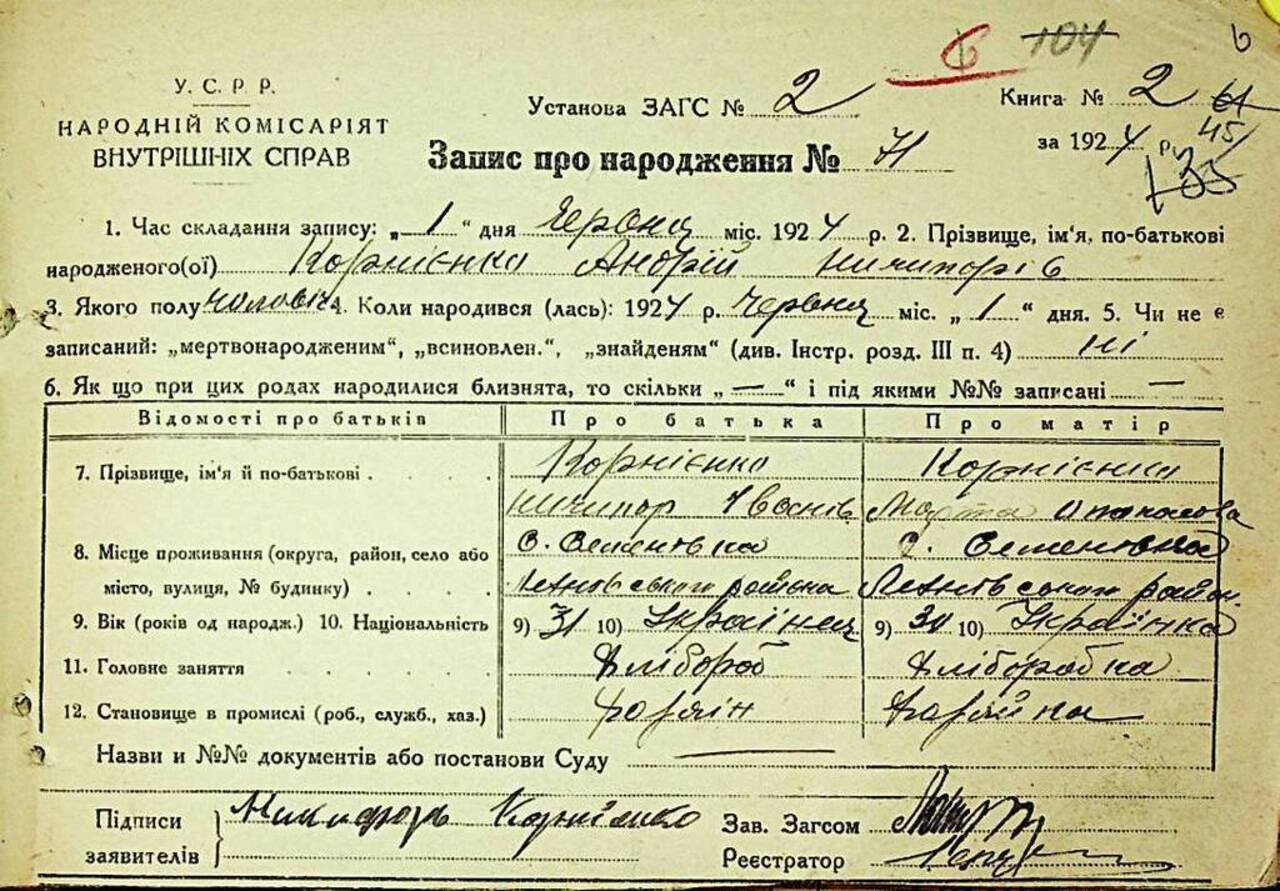 6 104 6
У. С. Р. Р.
НАРОДНІЙ КОМІСАРІЯТ
ВНУТРІШНІХ СПРАВ
Установа ЗАГС № 2
Книга № 2
за 1924 р. 45
Запис про народження № 71
1. Час складання запису: „1“ дня Червня міс. 1924 р. 2. Прізвище, ім'я, по-батькові
народженого(ої) Корнієнко Андрій Ничипорів
3. Якого полу чоловіч 4. Коли народився (лась): 1924 р. Червня міс. „1“ дня. 5. Чи не є
записаний: „мертвонародженим“, „всиновлен.“, „знайденям“ (див. Інстр. розд. III п. 4) ні
6. Як що при цих родах народилися близнята, то скільки „—“ і під якими №№ записані —
Відомості про батьків Про батька Про матір
7. Прізвище, ім'я й по-батькові Корнієнко Корнієнко
Ничипор Іванів Марта Опанасова
8. Місце проживання (округа, район, село або С. Семенівка С. Семенівка
місто, вулиця, № будинку) району район.
9. Вік (років од народж.) 10. Національність 9) 31 10) Українець 9) 30 10) Українка
11. Головне заняття Хлібороб Хліборобка
12. Становище в промислі (роб., служб., хаз.) Хазяїн Хазяйка
Назви и №№ документів або постанови Суду
Підписи Никифоръ Корніенко Зав. Загсом
заявителів Реєстратор